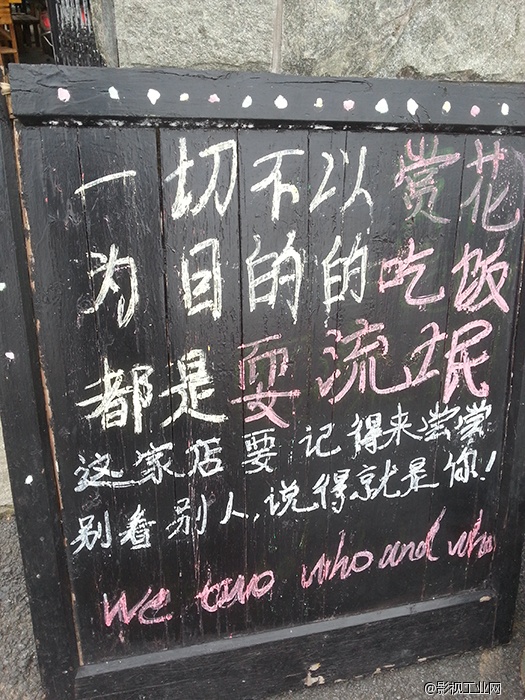 一切不以赏花
为目的的吃饭
都是耍流氓
这家店要记得来尝尝
别看别人,说得就是你!
We two who and who
@影视工业网